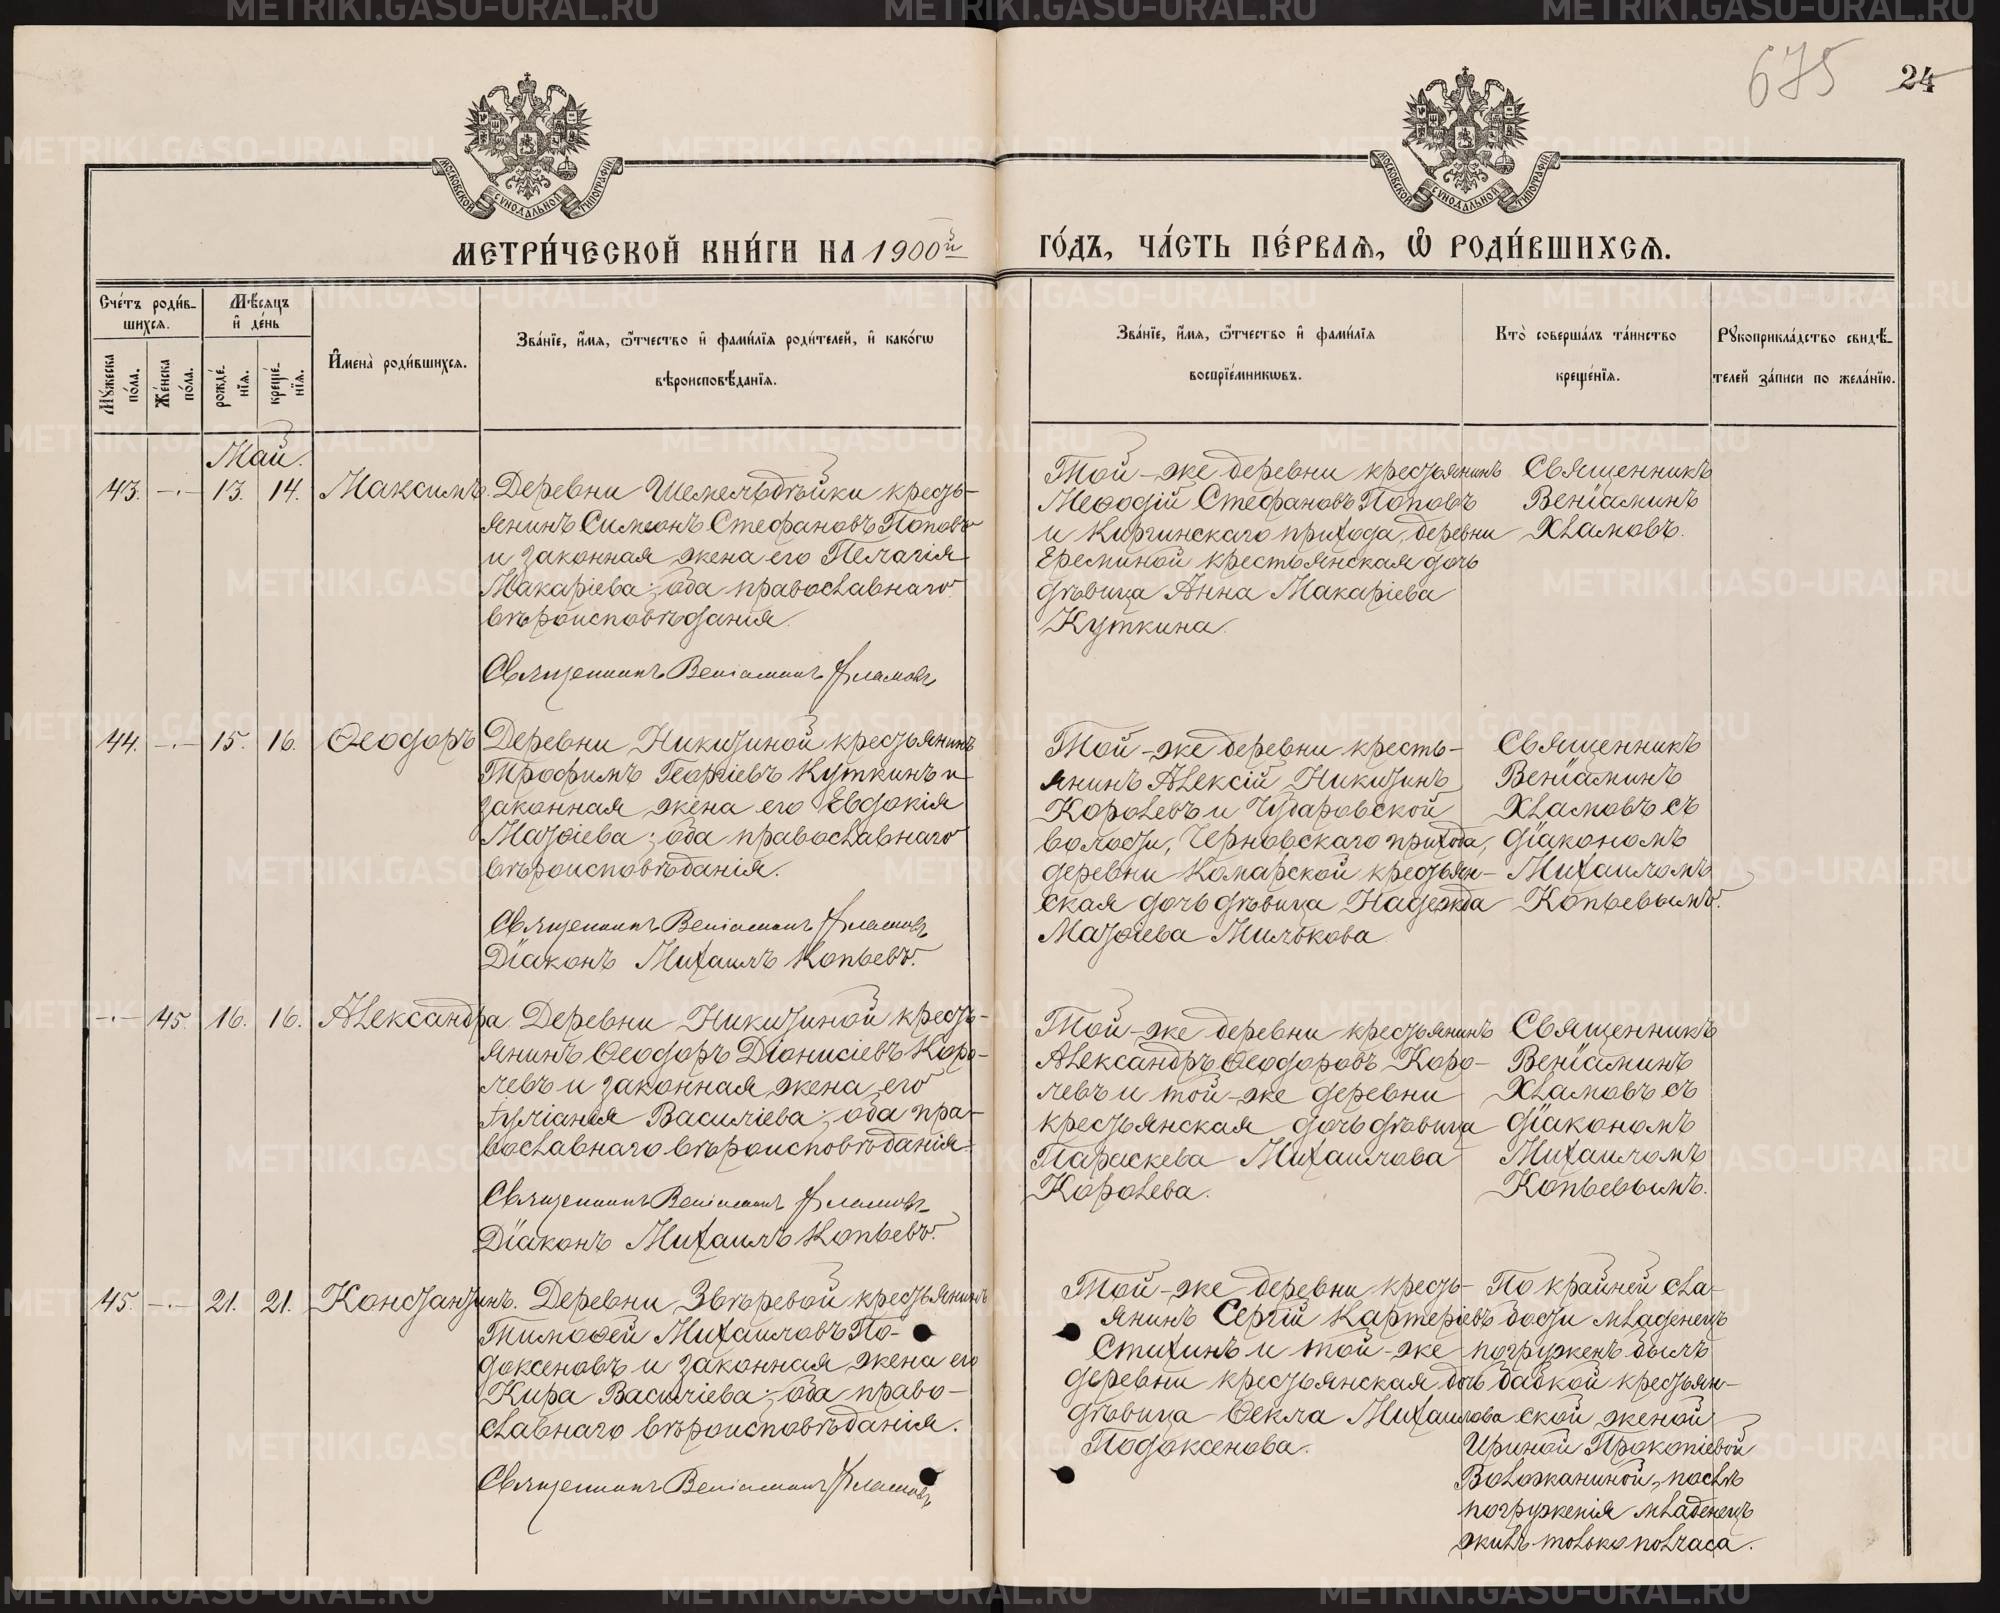 675
24
МОСКОВСКОЙ СѴНОДАЛЬНОЙ ТИПОГРАФІИ
МОСКОВСКОЙ СѴНОДАЛЬНОЙ ТИПОГРАФІИ
МЕТРИ́ЧЕСКОЙ КНИ́ГИ НА 1900й
ГО́ДЪ, ЧА́СТЬ ПЕ́РВАЯ, Ѿ РОДИ́ВШИХСЯ.
Сче́тъ роди́в-
шихся.
Мѣ́сяцъ
и де́нь
Му́жеска
по́ла.
Же́нска
по́ла.
рожде́-
нїя.
креще́-
нїя.
Имена̀ роди́вшихся.
Зва́нїе, и́мя, ѻ҆́тчество и фами́лїя роди́телей, и како́гѡ
вѣроисповѣ́данїя.
Зва́нїе, и́мя, ѻ҆́тчество и фами́лїя
воспрїе́мникѡвъ.
Кто̀ соверша́лъ та́инство
креще́нїя.
Рꙋкоприкла́дство свидѣ́-
телей за́писи по жела́нїю.
Май.
43. -·- 13. 14. Максимъ.
Деревни Шемельдѣйки кресть-
янинъ Симеонъ Стефановъ Поповъ
и законная жена его Пелагія
Макаріева; оба православнаго
вѣроисповѣданія.
Священникъ Веніаминъ Хламовъ
Той-же деревни крестьянинъ
Меѳодій Стефановъ Поповъ
и Киргинскаго прихода, деревни
Ереминой крестьянская дочь
дѣвица Анна Макаріева
Куткина.
Священникъ
Веніаминъ
Хламовъ.
44. -·- 15. 16. Ѳеодоръ
Деревни Никитиной крестьянинъ
Трофимъ Георгіевъ Куткинъ и
законная жена его Евдокія
Матѳіева; оба православнаго
вѣроисповѣданія.
Священникъ Веніаминъ Хламовъ
Діаконъ Михаилъ Копьевъ.
Той-же деревни кресть-
янинъ Алексій Никитинъ
Королевъ и Чубаровской
волости, Черновскаго прихода,
деревни Комарской крестьян-
ская дочь дѣвица Надежда
Матѳіева Милькова.
Священникъ
Веніаминъ
Хламовъ съ
діакономъ
Михаиломъ
Копьевымъ.
-·- 45. 16. 16. Александра.
Деревни Никитиной кресть-
янинъ Ѳеодоръ Діонисіевъ Коро-
левъ и законная жена его
Іуліанія Василіева; оба пра-
вославнаго вѣроисповѣданія.
Священникъ Веніаминъ Хламовъ
Діаконъ Михаилъ Копьевъ.
Той-же деревни крестьянинъ
Александръ Ѳеодоровъ Коро-
левъ и той-же деревни
крестьянская дочь дѣвица
Параскева Михаилова
Королева.
Священникъ
Веніаминъ
Хламовъ съ
діакономъ
Михаиломъ
Копьевымъ.
45. -·- 21. 21. Константинъ.
Деревни Звѣревой крестьянинъ
Тимоѳей Михаиловъ По-
доксеновъ и законная жена его
Кира Василіева; оба право-
славнаго вѣроисповѣданія.
Священникъ Веніаминъ Хламовъ
Той-же деревни кресть-
янинъ Сергій Картеріевъ
Стихинъ и той-же
деревни крестьянская дочь
дѣвица Ѳекла Михаилова
Подоксенова.
По крайней сла-
бости младенецъ
погруженъ былъ
бабкой крестьян-
ской женой
Ириной Прокопіевой
Воложаниной, послѣ
погруженія младенецъ
жилъ только полчаса.